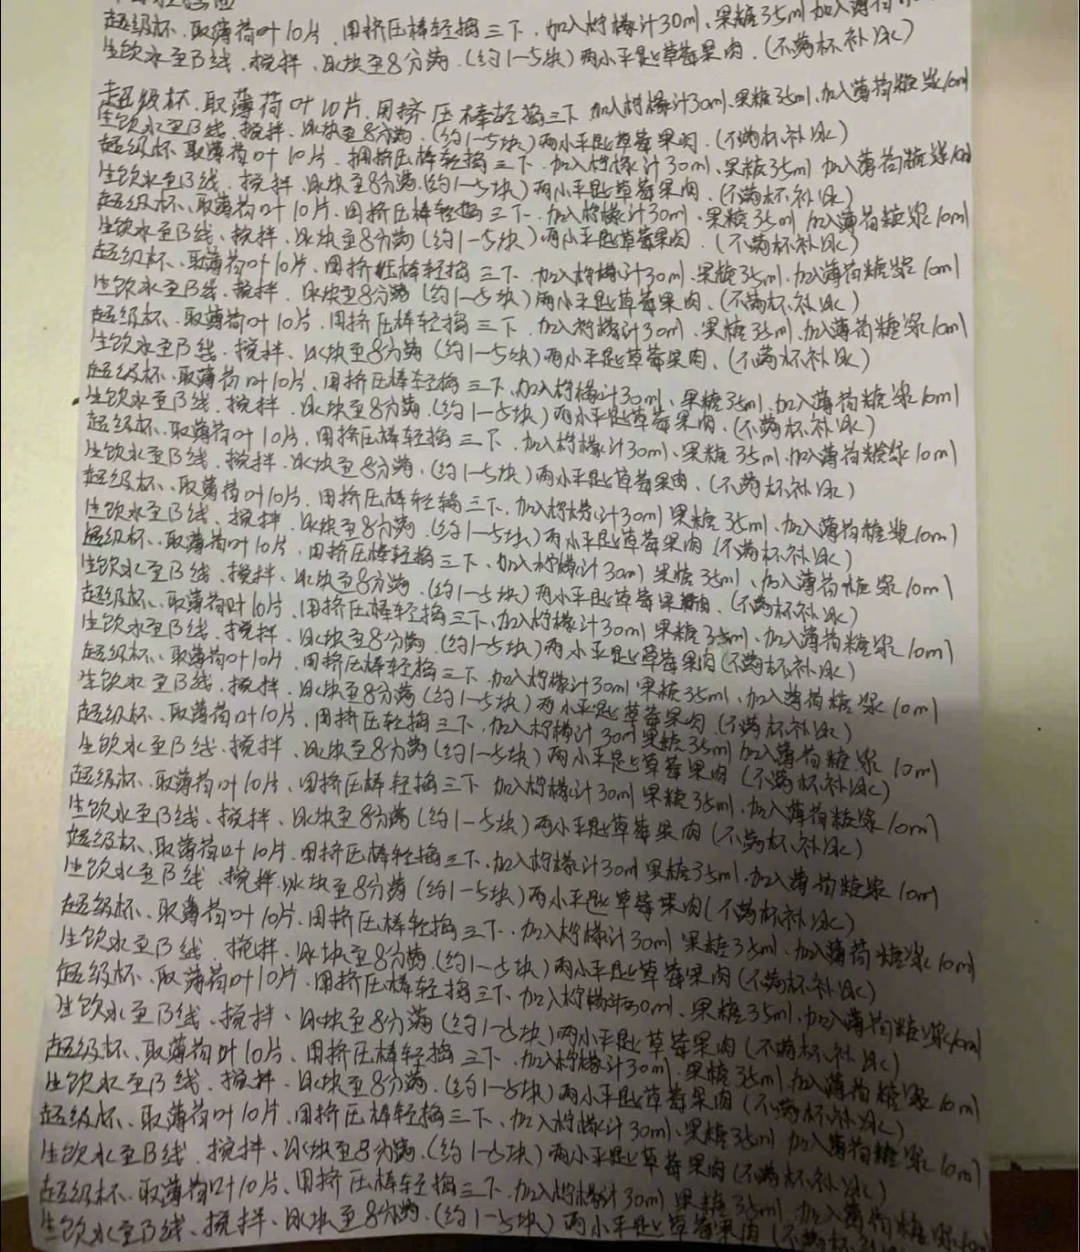 超级杯、取薄荷叶10片、用挤压棒轻捣三下、加入柠檬汁30ml、果糖35ml加入薄荷
生饮水至B线、搅拌、冰块至8分满、(约1-5块)两小平匙草莓果肉、(不满杯补冰)
超级杯、取薄荷叶10片、用挤压棒轻捣三下、加入柠檬汁30ml、果糖35ml、加入薄荷糖浆10ml
生饮水至B线、搅拌、冰块至8分满、(约1-5块)两小平匙草莓果肉、(不满杯补冰)
超级杯、取薄荷叶10片、捆挤压棒轻捣三下、加入柠檬汁30ml、果糖35ml 加入薄荷糖浆10ml
生饮水至B线、搅拌、冰块至8分满(约1-5块)两小平匙草莓果肉、(不满杯补冰)
超级杯、取薄荷叶10片、用挤压棒轻捣三下、加入柠檬汁30ml、果糖35ml 加入薄荷糖浆10ml
生饮水至B线、搅拌、冰块至8分满(约1-5块)两小平匙草莓果肉、(不满杯补冰)
超级杯、取薄荷叶10片、用挤压棒轻捣三下、加入柠檬汁30ml、果糖35ml、加入薄荷糖浆10ml
生饮水至B线、搅拌、冰块至8分满(约1-5块)两小平匙草莓果肉、(不满杯补冰)
超级杯、取薄荷叶10片、用挤压棒轻捣三下、加入柠檬汁30ml、果糖35ml、加入薄荷糖浆10ml
生饮水至B线、搅拌、冰块至8分满(约1-5块)两小平匙草莓果肉、(不满杯补冰)
超级杯、取薄荷叶10片、用挤压棒轻捣三下、加入柠檬汁30ml、果糖35ml、加入薄荷糖浆10ml
生饮水至B线、搅拌、冰块至8分满、(约1-5块)两小平匙草莓果肉、(不满杯补冰)
超级杯、取薄荷叶10片、用挤压棒轻捣三下、加入柠檬汁30ml、果糖35ml、加入薄荷糖浆10ml
生饮水至B线、搅拌、冰块至8分满、(约1-5块)两小平匙草莓果肉、(不满杯补冰)
超级杯、取薄荷叶10片、用挤压棒轻捣三下、加入柠檬汁30ml 果糖35ml、加入薄荷糖浆10ml
生饮水至B线、搅拌、冰块至8分满、(约1-5块)两小平匙草莓果肉(不满杯补冰)
超级杯、取薄荷叶10片、用挤压棒轻捣三下、加入柠檬汁30ml 果糖35ml、加入薄荷糖浆10ml
生饮水至B线、搅拌、冰块至8分满、(约1-5块)两小平匙草莓果肉、(不满杯补冰)
超级杯、取薄荷叶10片、用挤压棒轻捣三下、加入柠檬汁30ml 果糖35ml、加入薄荷糖浆10ml
生饮水至B线、搅拌、冰块至8分满、(约1-5块)两小平匙草莓果肉(不满杯补冰)
超级杯、取薄荷叶10片、用挤压棒轻捣三下、加入柠檬汁30ml 果糖35ml、加入薄荷糖浆10ml
生饮水至B线、搅拌、冰块至8分满(约1-5块)两小平匙草莓果肉、(不满杯补冰)
超级杯、取薄荷叶10片、用挤压轻捣三下、加入柠檬汁30ml 果糖35ml 加入薄荷糖浆10ml
生饮水至B线、搅拌、冰块至8分满(约1-5块)两小平匙草莓果肉(不满杯补冰)
超级杯、取薄荷叶10片、用挤压棒轻捣三下 加入柠檬汁30ml 果糖35ml、加入薄荷糖浆10ml
生饮水至B线、搅拌、冰块至8分满(约1-5块)两小平匙草莓果肉(不满杯补冰)
超级杯、取薄荷叶10片、用挤压棒轻捣三下、加入柠檬汁30ml 果糖35ml、加入薄荷糖浆10ml
生饮水至B线、搅拌、冰块至8分满(约1-5块)两小平匙草莓果肉(不满杯补冰)
超级杯、取薄荷叶10片、用挤压棒轻捣三下、加入柠檬汁30ml 果糖35ml、加入薄荷糖浆10ml
生饮水至B线、搅拌、冰块至8分满、(约1-5块)两小平匙草莓果肉(不满杯补冰)
超级杯、取薄荷叶10片、用挤压棒轻捣三下、加入柠檬汁30ml、果糖35ml、加入薄荷糖浆10ml
生饮水至B线、搅拌、冰块至8分满(约1-5块)两小平匙草莓果肉(不满杯补冰)
超级杯、取薄荷叶10片、用挤压棒轻捣三下、加入柠檬汁30ml、果糖35ml、加入薄荷糖浆10ml
生饮水至B线、搅拌、冰块至8分满、(约1-5块)两小平匙草莓果肉(不满杯补冰)
超级杯、取薄荷叶10片、用挤压棒轻捣三下、加入柠檬汁30ml、果糖35ml 加入薄荷糖浆10ml
生饮水至B线、搅拌、冰块至8分满、(约1-5块)两小平匙草莓果肉(不满杯补冰)
超级杯、取薄荷叶10片、用挤压棒轻捣三下、加入柠檬汁30ml 果糖35ml、加入薄荷糖浆10ml
生饮水至B线、搅拌、冰块至8分满、(约1-5块)两小平匙草莓果肉(不满杯